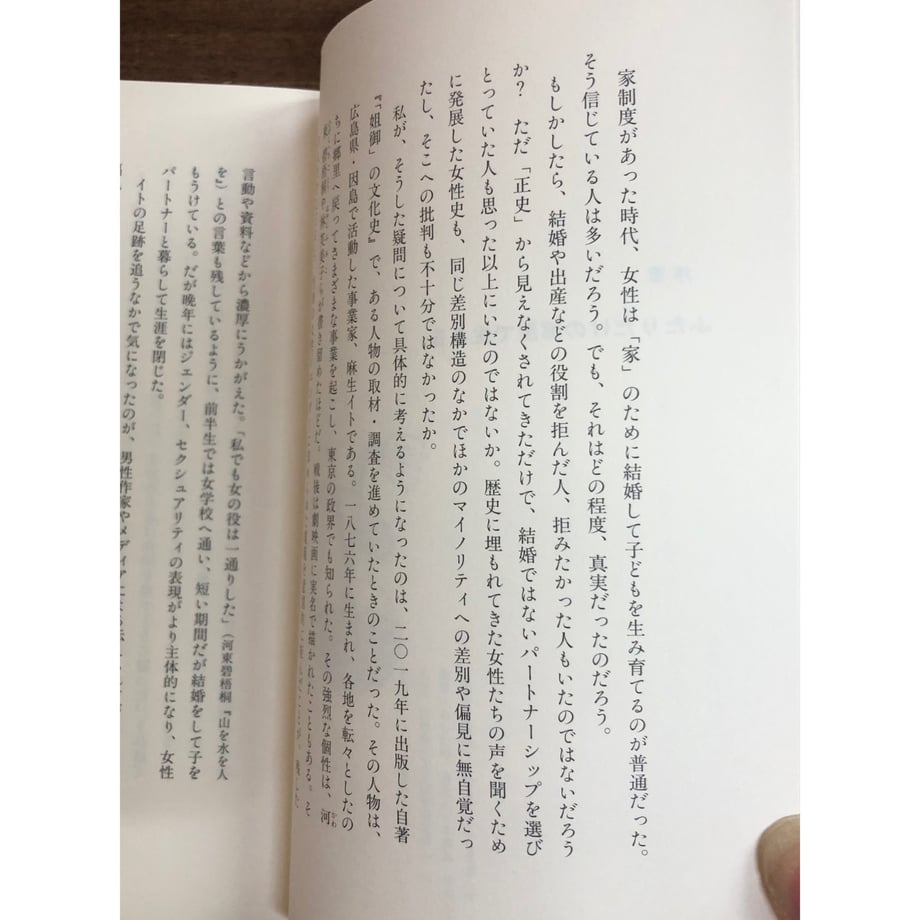 家制度があった時代、女性は「家」のために結婚して子どもを生み育てるのが普通だった。
そう信じている人は多いだろう。でも、それはどの程度、真実だったのだろう。
もしかしたら、結婚や出産などの役割を拒んだ人、拒みたかった人もいたのではないだろう
か? ただ「正史」から見えなくされてきただけで、結婚ではないパートナーシップを選び
とっていた人も思った以上にいたのではないか。歴史に埋もれてきた女性たちの声を聞くため
に発展した女性史も、同じ差別構造のなかでほかのマイノリティへの差別や偏見に無自覚だっ
たし、そこへの批判も不十分ではなかったか。
私が、そうした疑問について具体的に考えるようになったのは、二〇一九年に出版した自著
『「姐御」の文化史』で、ある人物の取材・調査を進めていたときのことだった。その人物は、
広島県・因島で活動した事業家、麻生イトである。一八七六年に生まれ、各地を転々としたの
ちに郷里へ戻ってさまざまな事業を起こし、東京の政界でも知られた。その強烈な個性は、河
らが書き留めたほどだ。戦後は劇映画に実名で描かれたこともある。そ
言動や資料などから濃厚にうかがえた。「私でも女の役は一通りした」(河東碧梧桐『山を水を人
を』)との言葉も残しているように、前半生では女学校へ通い、短い期間だが結婚をして子を
もうけている。だが晩年にはジェンダー、セクシュアリティの表現がより主体的になり、女性
パートナーと暮らして生涯を閉じた。
イトの足跡を追うなかで気になったのが、男性作家やメディアによる